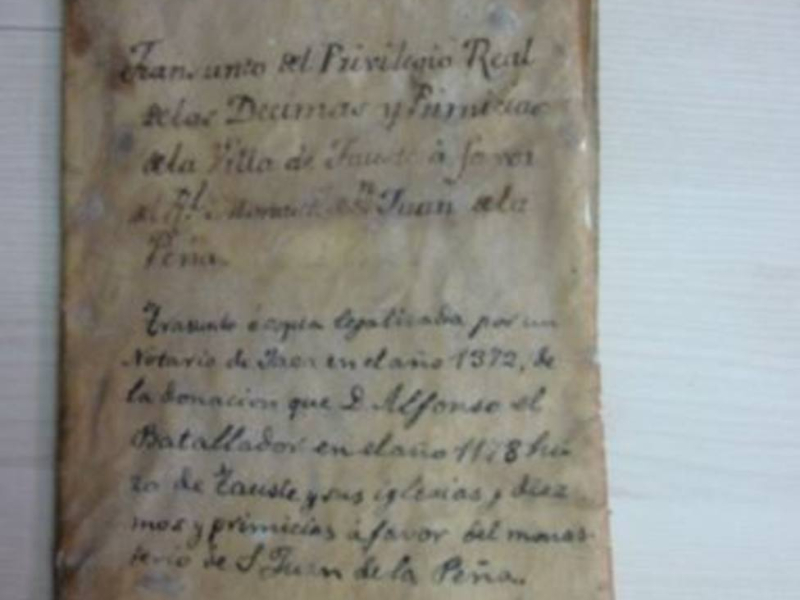 Transunto del Privilegio Real
de las Decimas y Primicias
de la Villa de Tauste á favor
del Rl. Monast. de Sn Juan de la
Peña.
Trasunto ó copia legalizada por un
Notario de Jaca en el año 1372, de
la donacion que D. Alfonso el
Batallador en el año 1178 hi-
zo de Tauste y sus iglesias, diez
mos y primicias á favor del monas-
terio de S. Juan de la Peña.